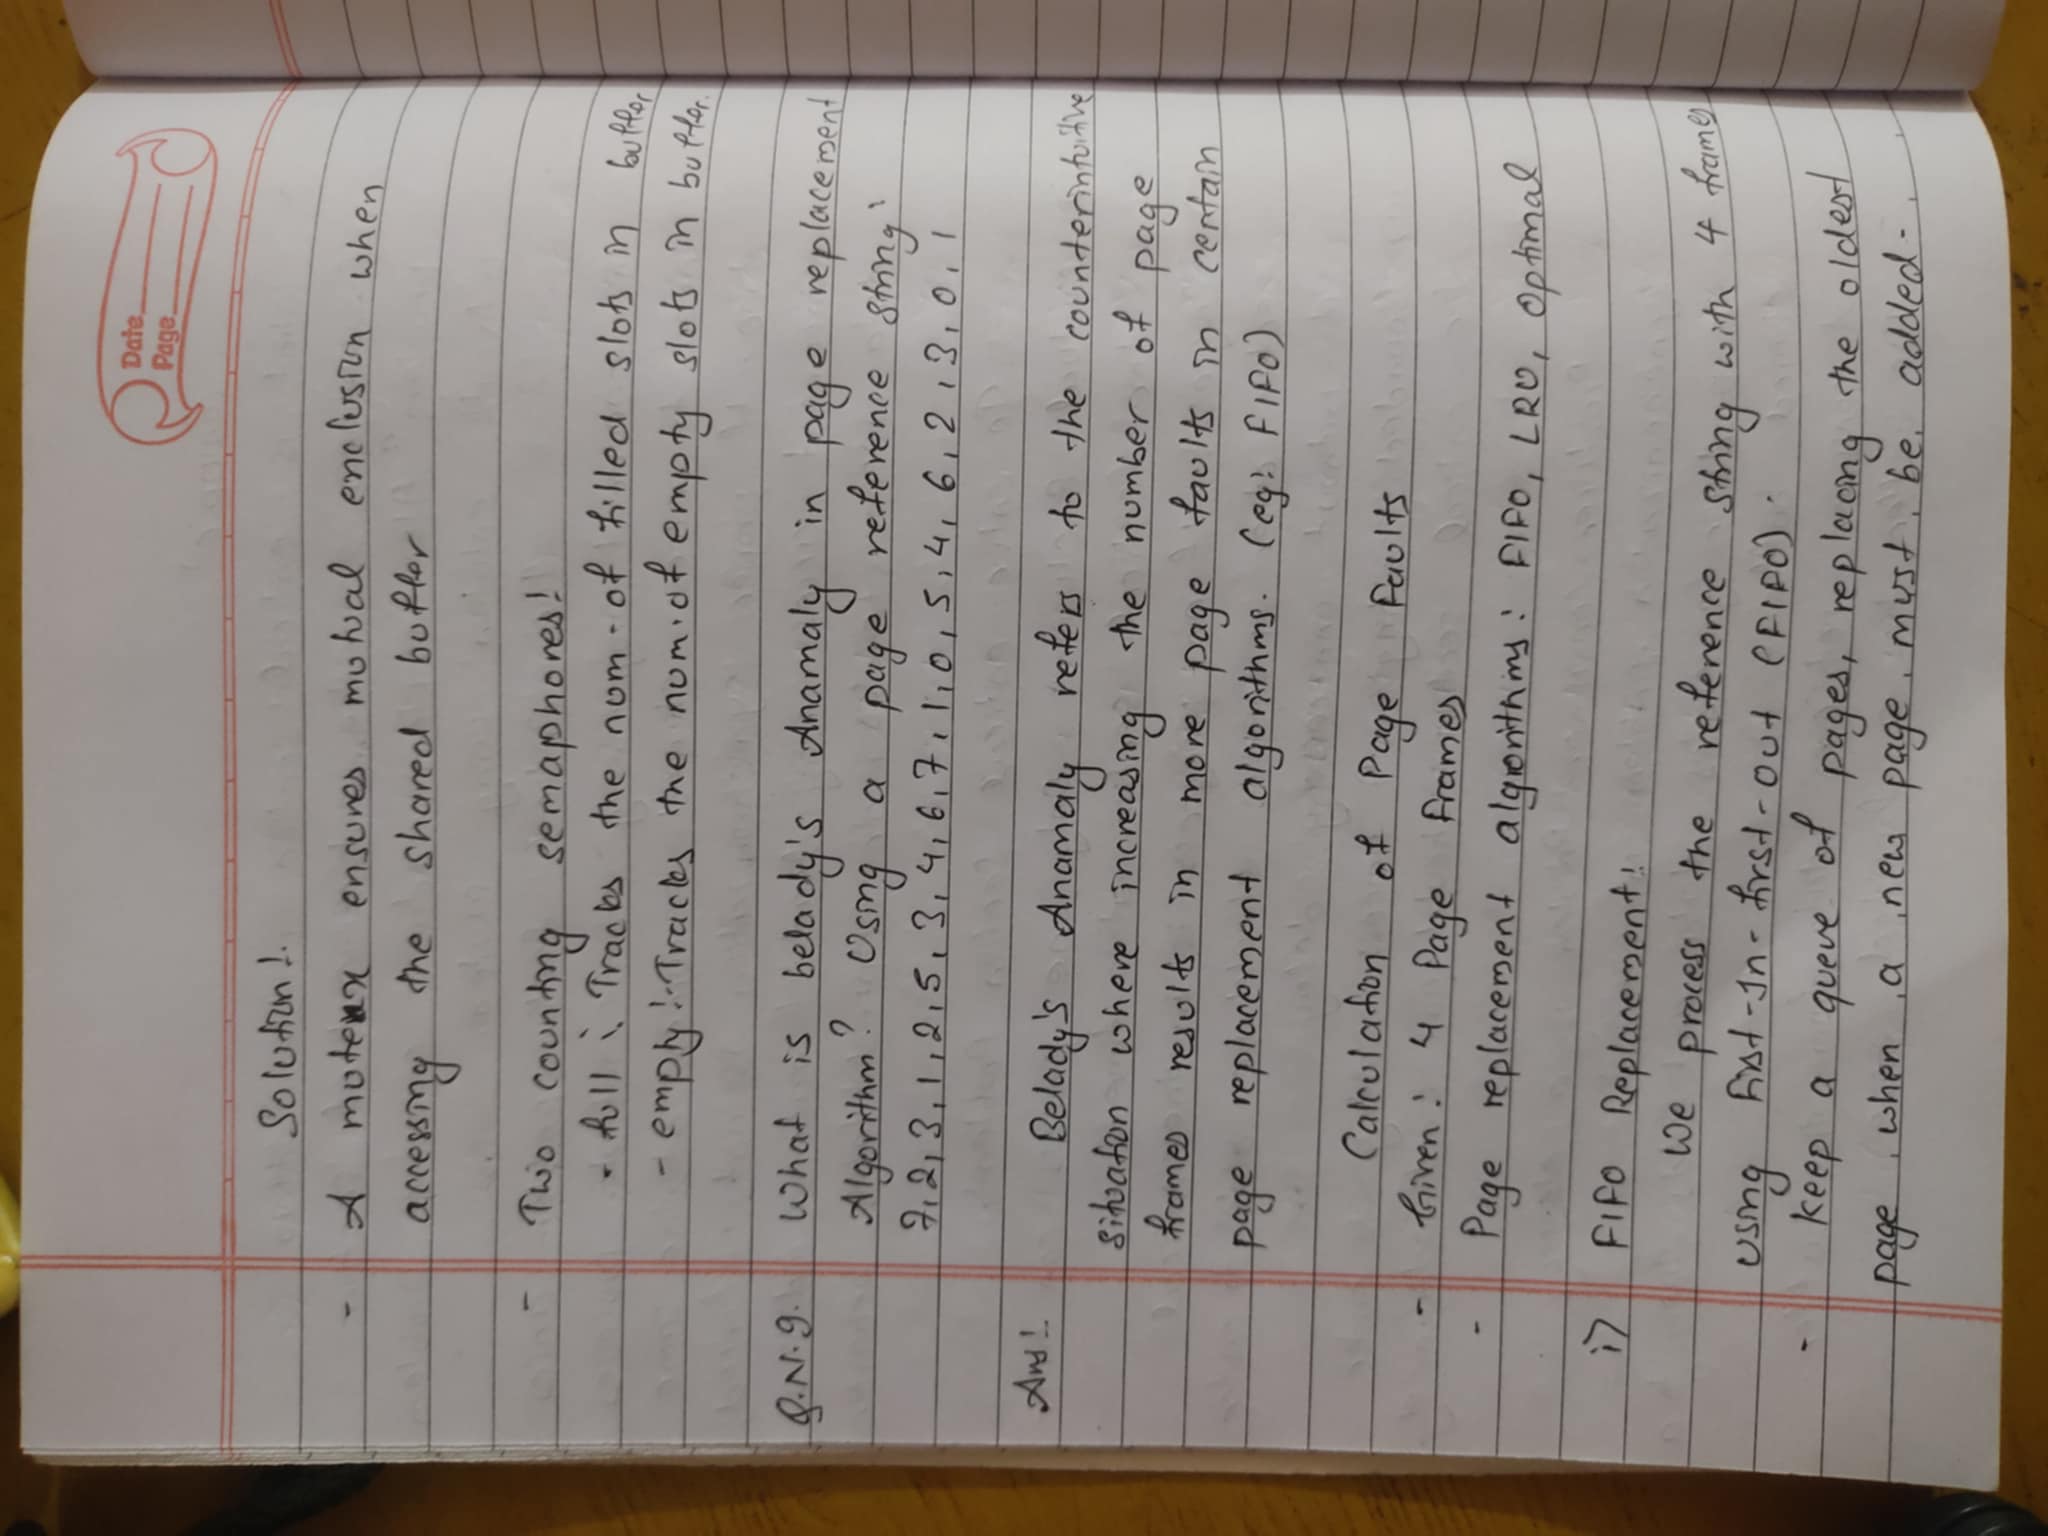 Date
Page
Solution:
- A mutex ensures mutual exclusion when
accessing the shared buffer
- Two counting semaphores:
- full : Tracks the num. of filled slots in buffer
- empty :- Tracks the num. of empty slots in buffer.
Q.N.9. What is belady's Anamaly in page replacement
Algorithm? Using a page reference string:
7, 2, 3, 1, 2, 5, 3, 4, 6, 7, 1, 0, 5, 4, 6, 2, 3, 0, 1
Ans: Belady's Anamaly refers to the counterintuitive
situation where increasing the number of page
frames results in more page faults in certain
page replacement algorithms. (eg: FIFO)
Calculation of Page Faults
- Given: 4 Page Frames
- Page replacement algorithms: FIFO, LRU, Optimal
i) FIFO Replacement:
We process the reference string with 4 frames
using First-In-first-out (FIFO).
- Keep a queue of pages, replacing the oldest
page when a new page must be added.